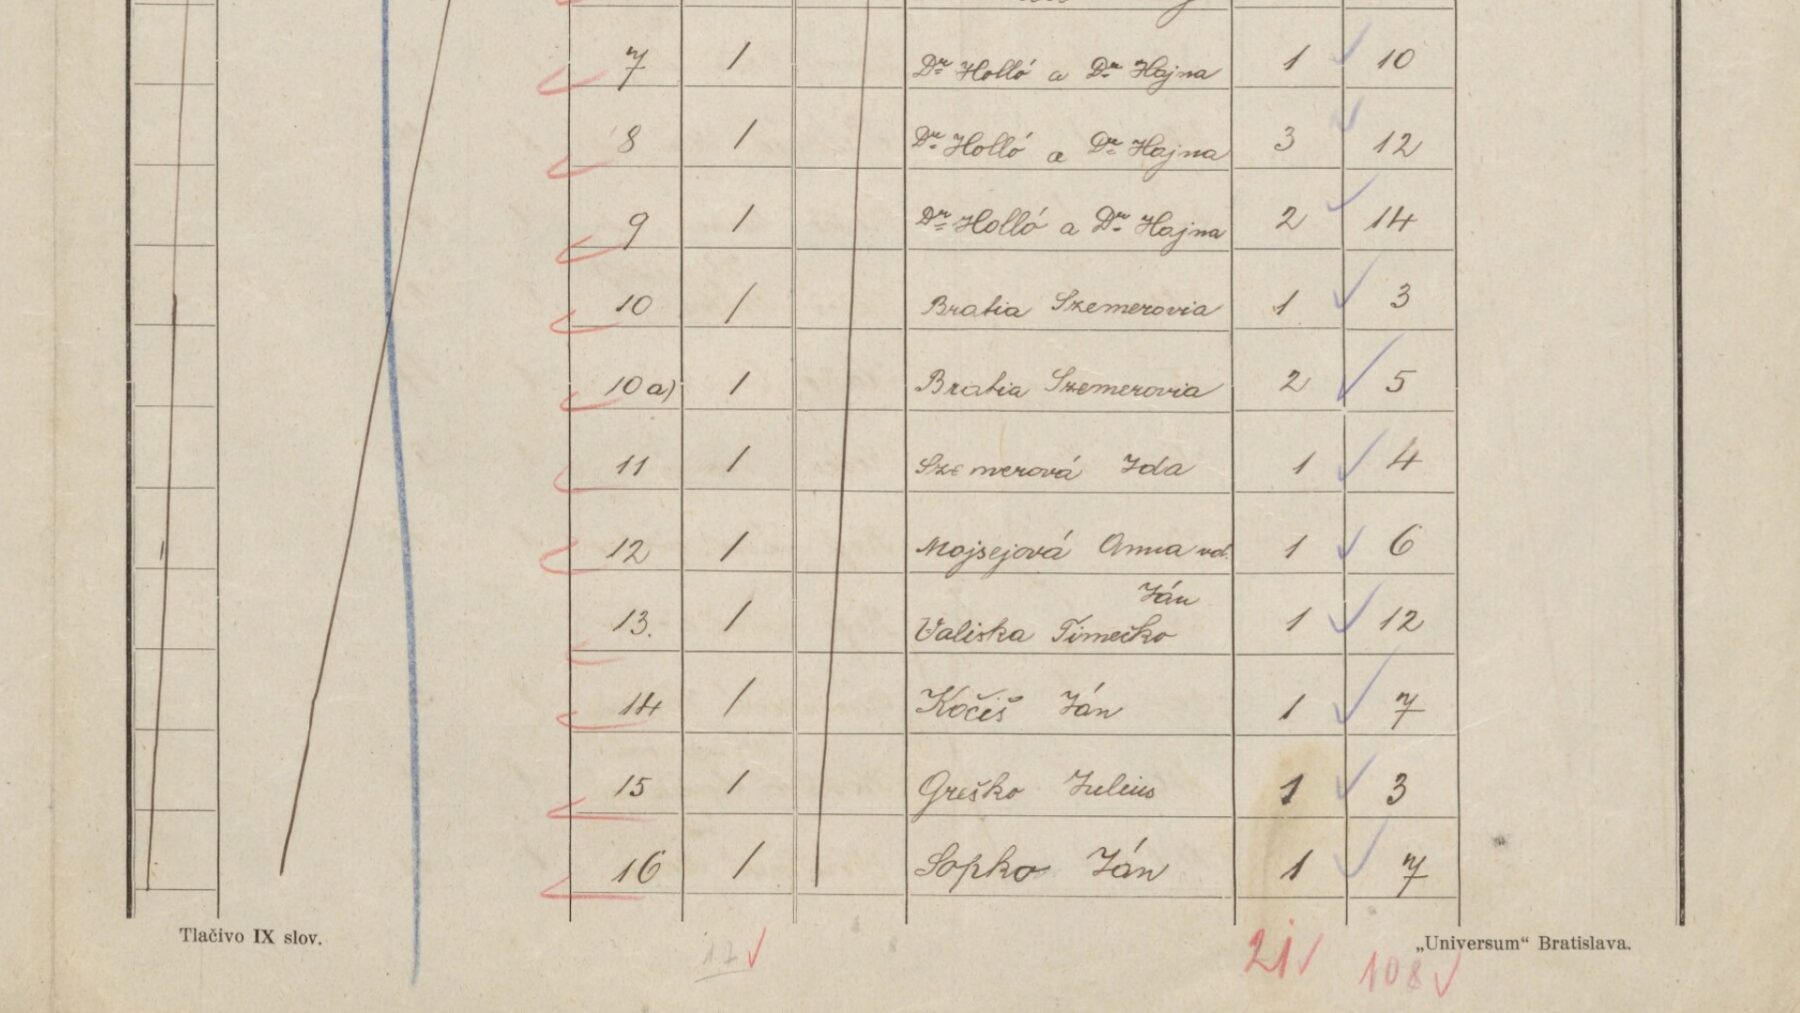 7 / Dr. Holló a Dr. Hajna 1 10
8 / Dr. Holló a Dr. Hajna 3 12
9 / Dr. Holló a Dr. Hajna 2 14
10 / Bratia Szemerovia 1 3
10 a) / Bratia Szemerovia 2 5
11 / Szemerová Ida 1 4
12 / Mojsejová Anna vd. 1 6
Ján
13. / Valiska Timečko 1 12
14 / Kočiš Ján 1 7
15 / Greško Julius 1 3
16 / Sopko Ján 1 7
Tlačivo IX slov.
„Universum“ Bratislava.
17 21 108